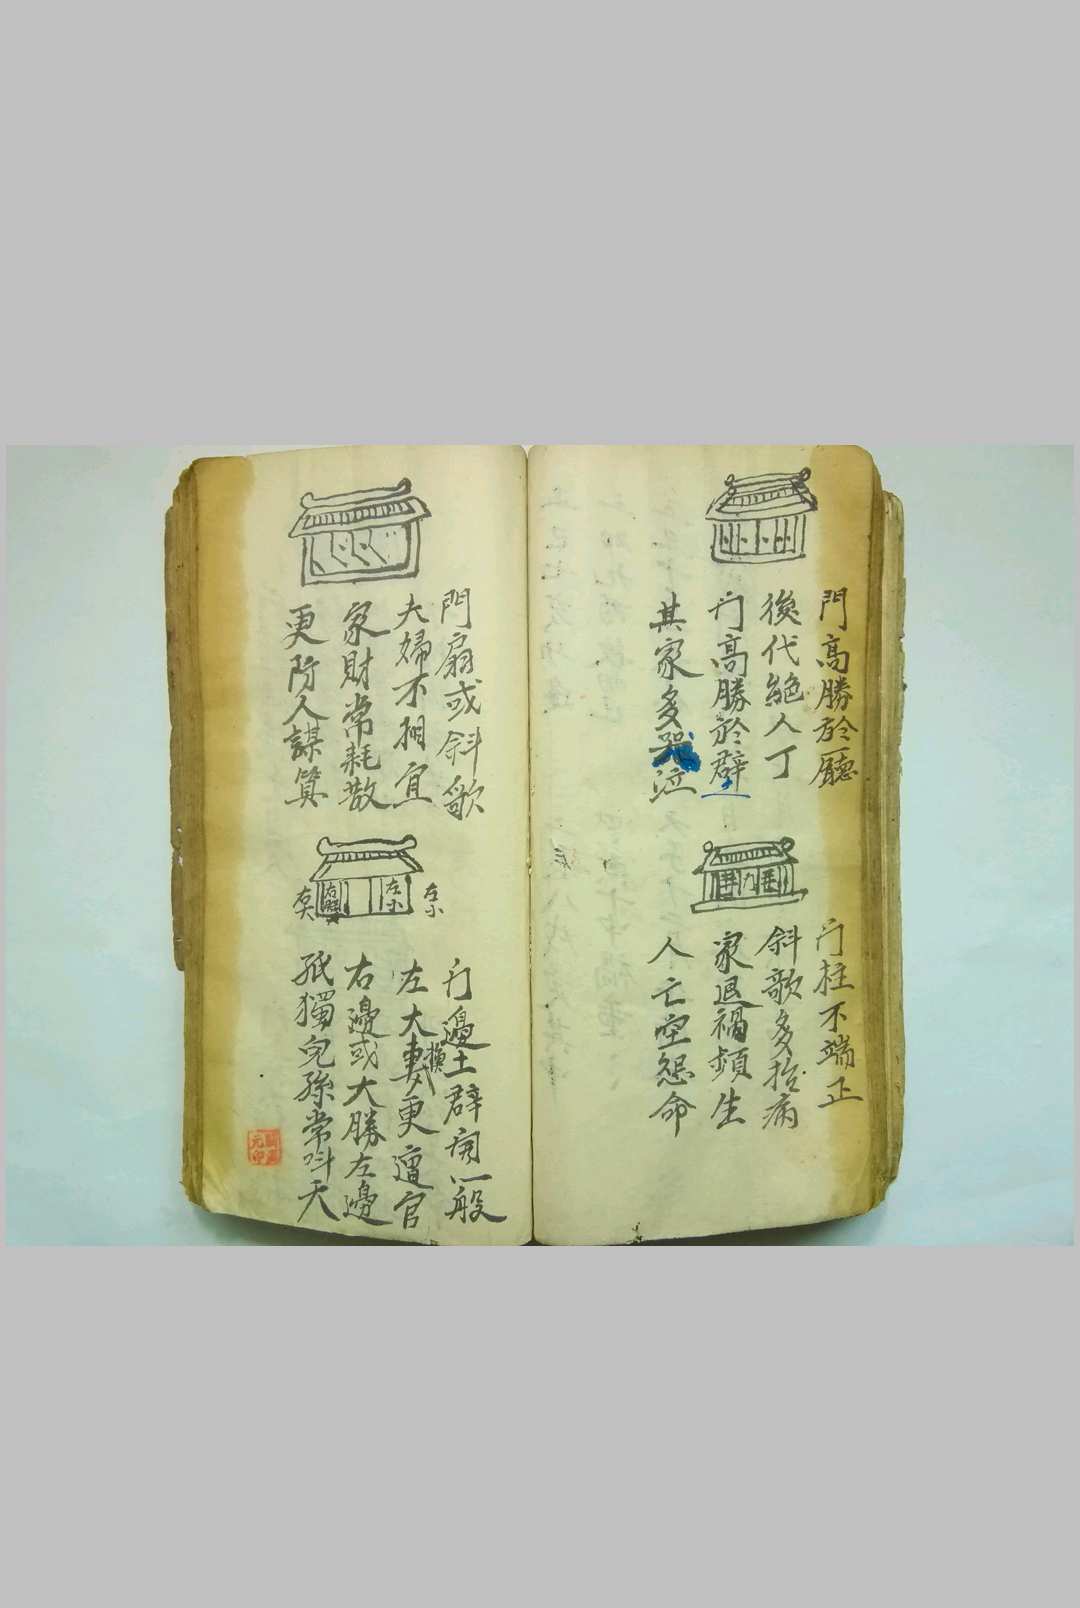 門高勝於廳
後代絕人丁
门高勝於壁
其家多哭泣
门柱不端正
斜歌多招病
家退禍頻生
人亡空怨命
門扇或斜歌
夫婦不相宜
家財常耗散
更防人謀算
左小
左小
右大
门邊土壁要一般
左大換妻更遭官
右邊或大勝左邊
孤獨兒孫常叫天